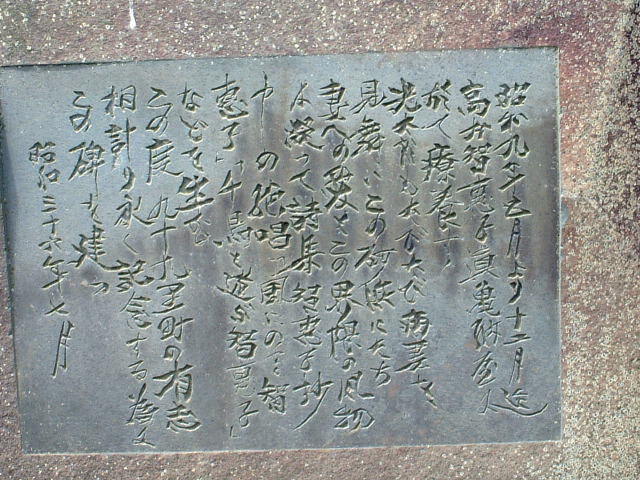 昭和九年五月より十二月迄
高村智恵子真亀納屋に
於て療養す
光太郎もたびたび病妻を
見舞いこの砂浜にたち
妻への愛とこの界隈の風物
は凝って詩集智恵子抄
中の絶唱「風にのる智
恵子」「千鳥と遊ぶ智恵子」
などを生む
この度九十九里町の有志
相計り永く記念する為め
この碑を建つ
昭和三十六年七月